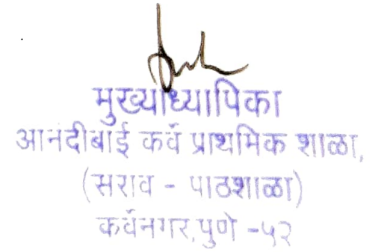 मुख्याध्यापिका
आनंदीबाई कर्वे प्राथमिक शाळा,
(सराव - पाठशाळा)
कर्वेनगर, पुणे -५२